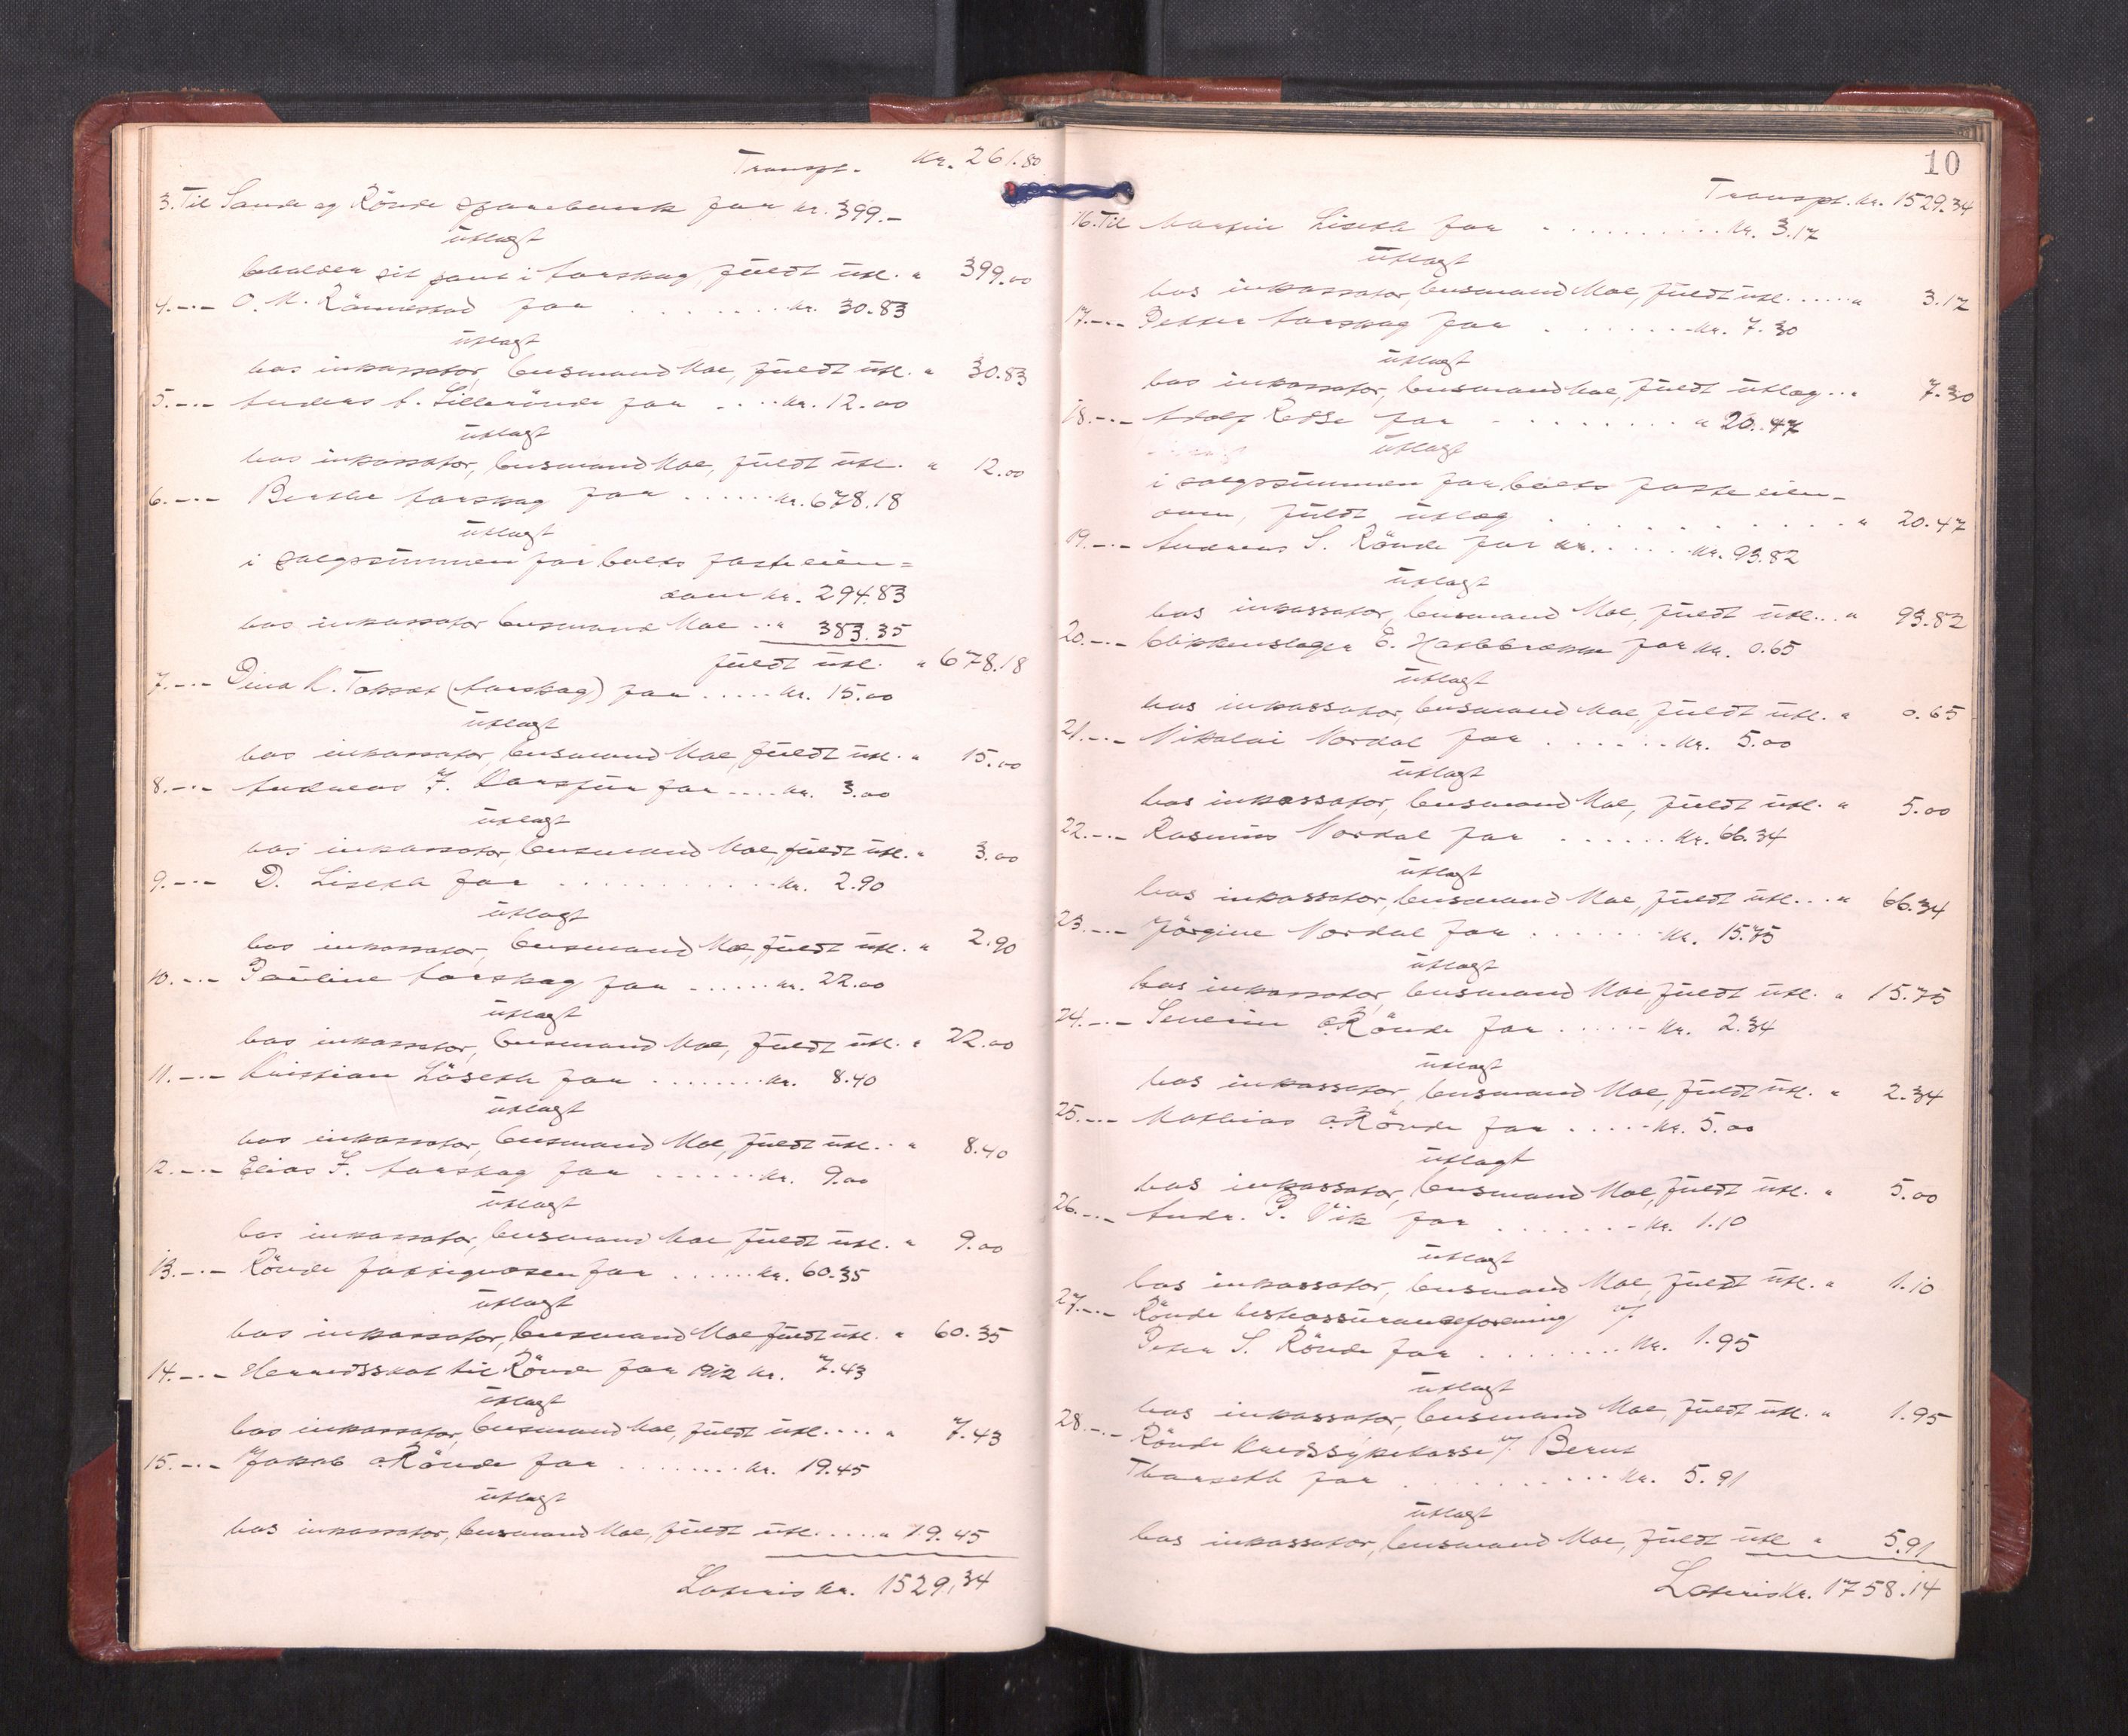 Transpt. Kr. 261.80
3. Til Sande og Rövde sparebank for kr. 399.-
utlagt
beholder sit pant i Aarskog, fuldt utl. " 399.00
4. -"- O. M. Rönnestad for ........ kr. 30.83
utlagt
hos inkassator, lensmand Moe, fuldt utl. " 30.83
5. -"- Anders A. Lillerövde for .... kr. 12.00
utlagt
hos inkassator, lensmand Moe, fuldt utl. " 12.00
6. -"- Berthe Aarskog for ...... kr. 678.18
utlagt
i salgssummen for boets faste eien=
dom kr. 294.83
hos inkassator lensmand Moe .. " 383.35
fuldt utl. " 678.18
7. -"- Dina K. Taksat (Aarskog) for ..... kr. 15.00
utlagt
hos inkassator, lensmand Moe, fuldt utl. " 15.00
8. -"- Andreas J. for .... kr. 3.00
utlagt
hos inkassator, lensmand Moe, fuldt utl. " 3.00
9. -"- D. Liseth for ........... kr. 2.90
utlagt
hos inkassator, lensmand Moe, fuldt utl. " 2.90
10. -"- Pauline Aarskog for ...... kr. 22.00
utlagt
hos inkassator, lensmand Moe, fuldt utl. " 22.00
11. -"- Kristian Löseth for ........ kr. 8.40
utlagt
hos inkassator, lensmand Moe, fuldt utl. " 8.40
12. -"- Elias J. Aarskog for ...... kr. 9.00
utlagt
hos inkassator, lensmand Moe fuldt utl. " 9.00
13. -"- Rövde fattigvæsen for ...... kr. 60.35
utlagt
hos inkassator, lensmand Moe fuldt utl. " 60.35
14. -"- Herredsskat til Rövde for 1912 kr. 7.43
utlagt
hos inkassator, lensmand Moe, fuldt utl. .... " 7.43
15. -"- Jakob O. Rövde for ........ kr. 19.45
utlagt
hos inkassator, lensmand Moe, fuldt utl. ..... " 19.45
Lateris kr. 1529,34
10
Transpt. kr. 1529.34
16. Til Martin Liseth for .......... kr. 3.17
utlagt
hos inkassator, lensmand Moe, fuldt utl. ..... " 3.17
17. -"- Petter Aarskog for ....... kr. 7.30
utlagt
hos inkassator, lensmand Moe, fuldt utlæg .. " 7.30
18. -"- Adolf for ......... " 20.47
utlagt
i salgssummen for boets faste eien-
dom, fuldt utlæg ............ " 20.47
19. -"- Andreas S. Rövde for kr. ..... kr. 93.82
utlagt
hos inkassator, lensmand Moe, fuldt utl... " 93.82
20. -"- blikkenslager E. for kr. 0.65
utlagt
hos inkassator, lensmand Moe, fuldt utl. " 0.65
21. -"- Nikolai Nordal for ...... kr. 5.00
utlagt
hos inkassator, lensmand Moe, fuldt utl. " 5.00
22. -"- Rasmus Nordal for ...... kr. 66.34
utlagt
hos inkassator, lensmand Moe, fuldt utl... " 66.34
23. -"- Jörgine Nordal for ....... kr. 15.75
utlagt
hos inkassator, lensmand Moe, fuldt utl. " 15.75
24. -"- Severin O. Rövde for ..... kr. 2.34
utlagt
hos inkassator, lensmand Moe, fuldt utl. " 2.34
25. -"- Mathias O. Rövde for .... kr. 5.00
utlagt
hos inkassator, lensmand Moe, fuldt utl. " 5.00
26. -"- Andr. P. Vik for ....... kr. 1.10
utlagt
hos inkassator, lensmand Moe, fuldt utl. " 1.10
27. -"- Rövde hesteassuranceforening v/
Peter S. Rövde for ........ kr. 1.95
utlagt
hos inkassator, lensmand Moe, fuldt utl. " 1.95
28. -"- Rövde Kredssykekasse v/ Bernt
Thorseth for .......... kr. 5.91
utlagt
hos inkassator, lensmand Moe, fuldt utl. " 5.91
Lateris kr. 1758.14